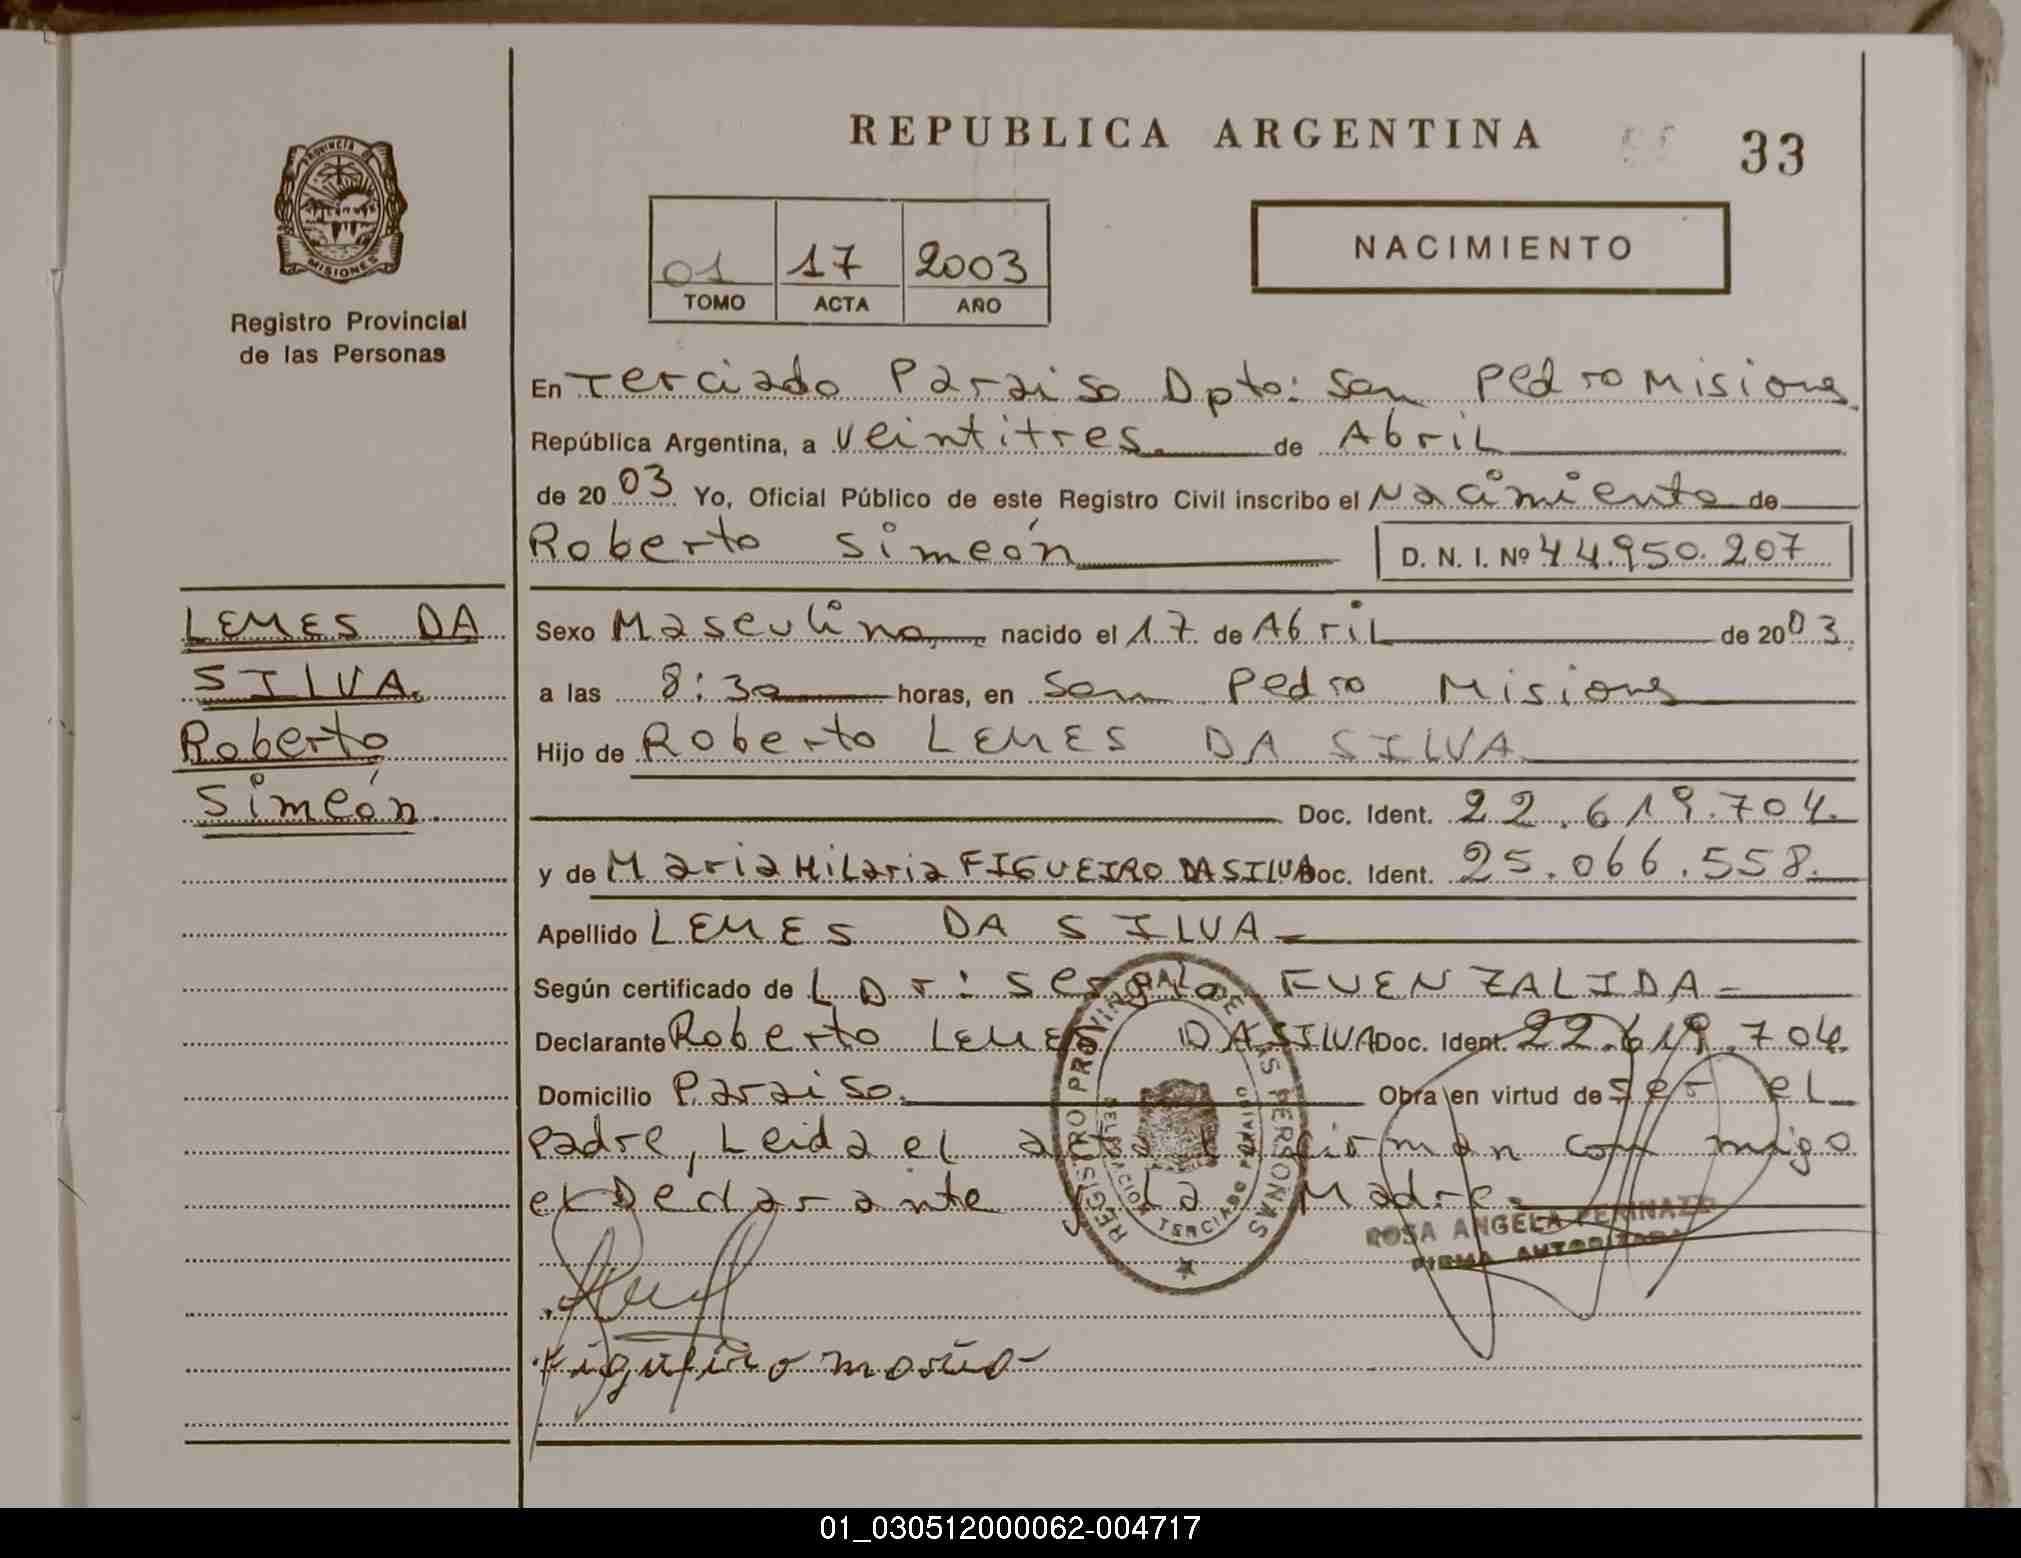 REPUBLICA ARGENTINA
33
PROVINCIA DE MISIONES
Registro Provincial
de las Personas
01 17 2003
TOMO ACTA AÑO
NACIMIENTO
En Terciado Paraiso Dpto: San Pedro Misiones
República Argentina, a veintitres de Abril
de 2003 Yo, Oficial Público de este Registro Civil inscribo el Nacimiento de
Roberto Simeón D. N. I. Nº 44.950.207
LEMES DA
SILVA
Roberto
Simeón
Sexo Masculino, nacido el 17 de Abril de 2003
a las 8:30 horas, en San Pedro Misiones
Hijo de Roberto LEMES DA SILVA
Doc. Ident. 22.619.704.
y de Maria Hilaria FIGUEIRO DA SILVA Doc. Ident. 25.066.558.
Apellido LEMES DA SILVA
Según certificado de L Dr: Sergio FUENZALIDA
Declarante Roberto LEMES DA SILVA Doc. Ident. 22.619.704.
Domicilio Paraiso. Obra en virtud de ser el
padre, Leida el acta firman con migo
el Declarante y La Madre.
REGISTRO PROVINCIAL DE LAS PERSONAS
DELEGACION TERCIADO PARAISO
ROSA ANGELA
FIRMA AUTORIZADA
Figueiro maria
01_030512000062-004717